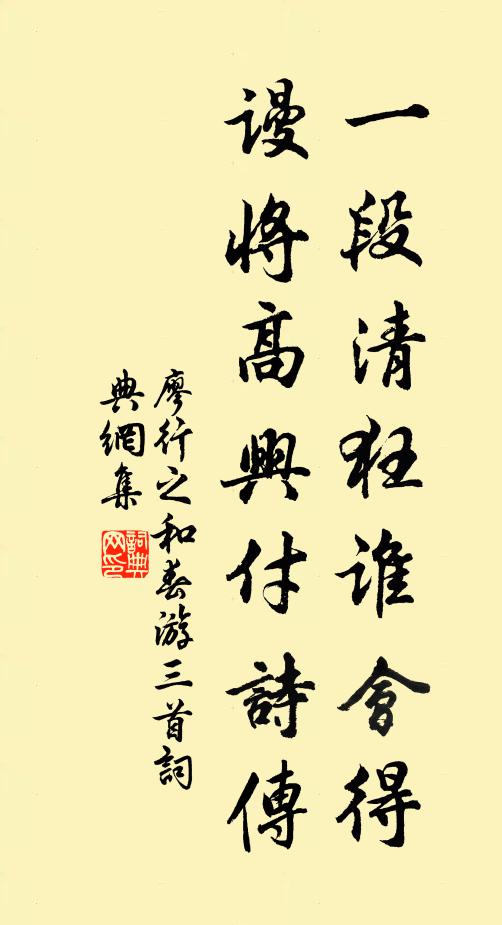 一段清狂誰會得
謾將高興付詩傳
廖行之和春游三首詞
典網集
詞典
网印